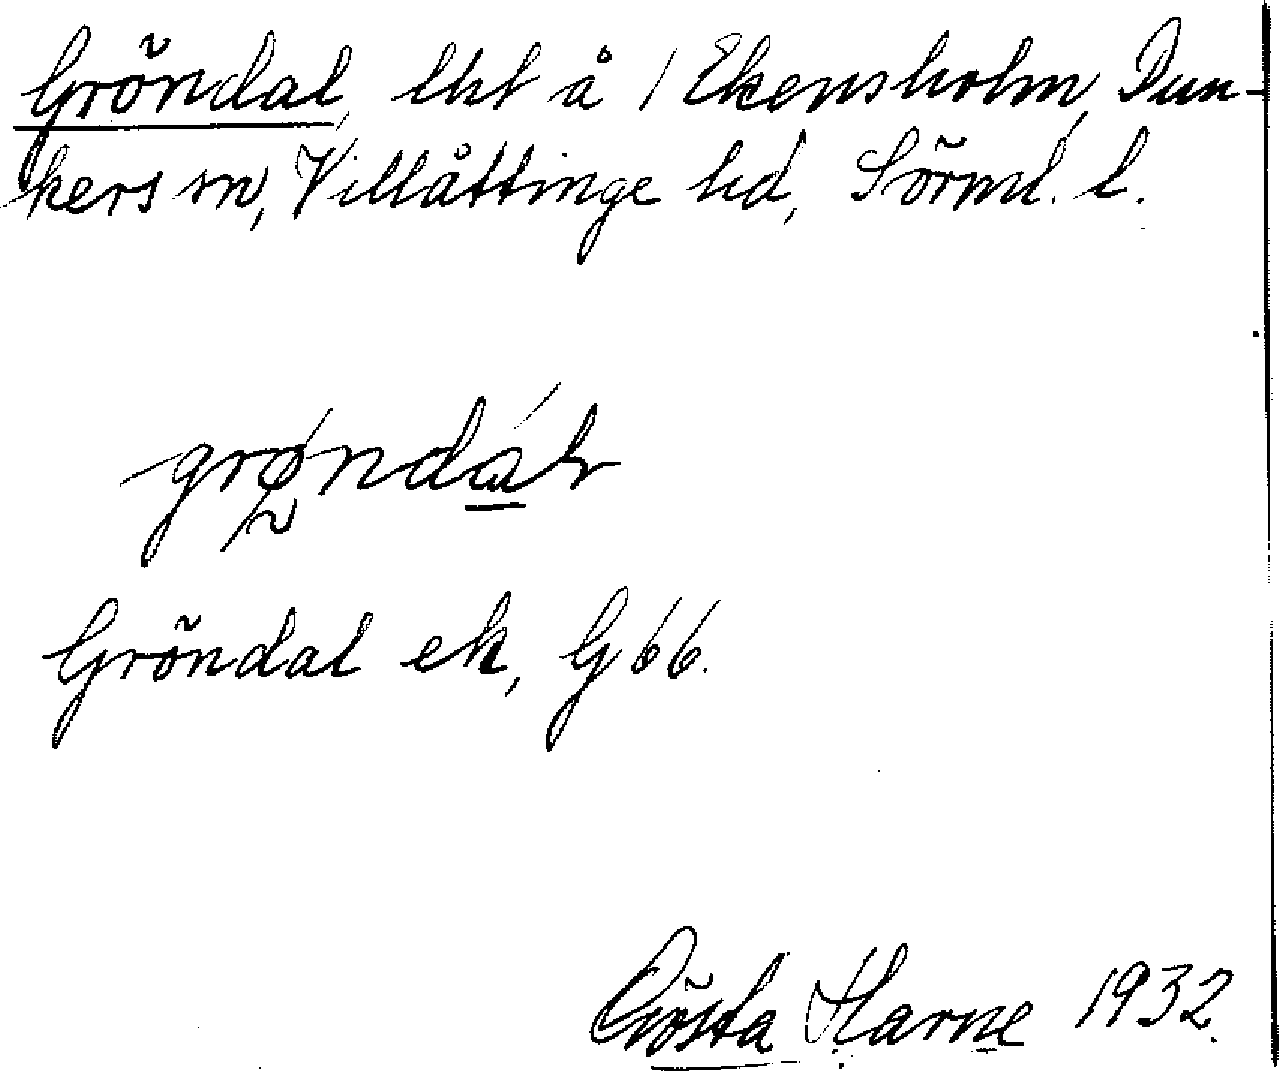 Gröndal, lht å / Ekensholm, Dun-
kers sn, Villåttinge hd, Sörml. l.
grøndál
Gröndal ek, G66.
Gösta Harne 1932.